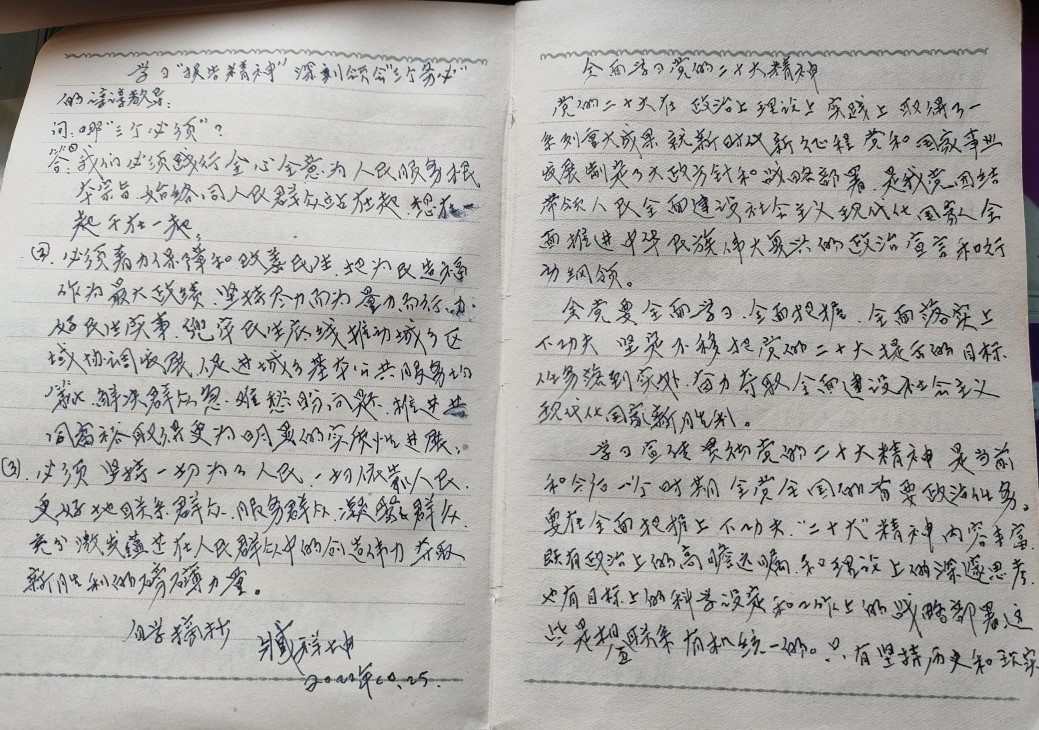 学习"报告精神"深刻领会"三个务必"
的谆谆教导：
问：哪"三个必须"？
答：①我们必须践行全心全意为人民服务根
本宗旨，始终同人民群众站在起，想在一
起干在一起。
(2)必须着力保障和改善民生，把为民造福
作为最大政绩，坚持尽力而为量力而行，办
好民生实事，兜牢民生底线推动城乡区
域协调发展，促进城乡基本公共服务均
等化，解决群众急难愁盼问题，推进共
同富裕取得更为明显的实质性进展。
(3)必须坚持一切为了人民，一切依靠人民，
更好地联系群众，服务群众，凝聚群众，
充分激发蕴藏在人民群众中的创造伟力夺取
新胜利的磅礴力量。
自学摘抄
2022年10.25.
全面学习党的二十大精神
党的二十大在政治上理论上实践上取得了一
系列重大成果就新时代新征程党和国家事业
发展制定了大政方针和战略部署，是我党团结
带领人民全面建设社会主义现代化国家全
面推进中华民族伟大复兴的政治宣言和行
动纲领。
全党要全面学习、全面把握、全面落实上
下功夫坚定不移把党的二十大提出的目标
任务落到实处，奋力夺取全面建设社会主义
现代化国家新胜利。
学习宣传贯彻党的二十大精神是当前
和今后一个时期全党全国的首要政治任务。
要在全面把握上下功夫，"二十大"精神内容丰富，
既有政治上的高瞻远瞩，和理论上的深邃思考，
也有目标上的科学设定和工作上的战略部署这
些是相互联系有机统一的。只有坚持历史和现实